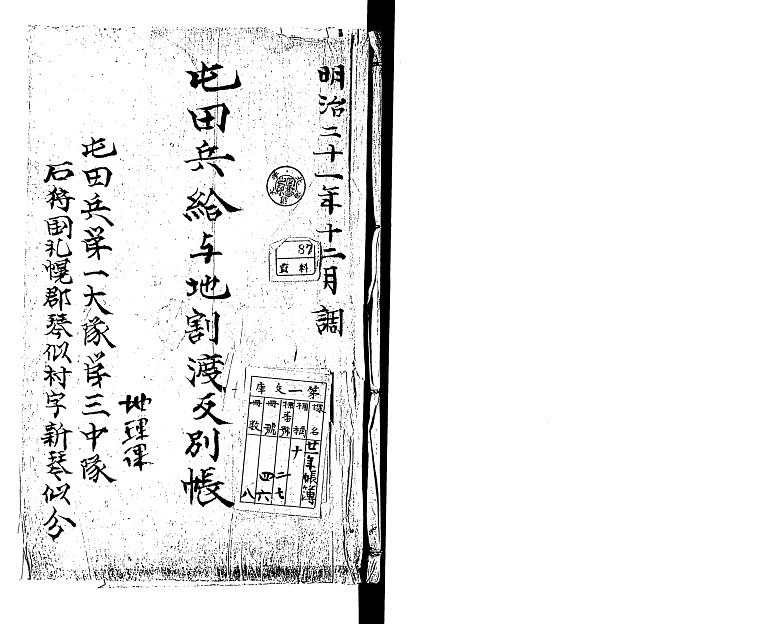 明治二十一年十二月調
87
資料
屯田兵給与地割渡反別帳
第一文庫
課名
棚號
棚番號
冊號
冊数
廿一年帳簿
十
二七
四六
八
地理課
屯田兵第一大隊第三中隊
石狩国札幌郡琴似村字新琴似分